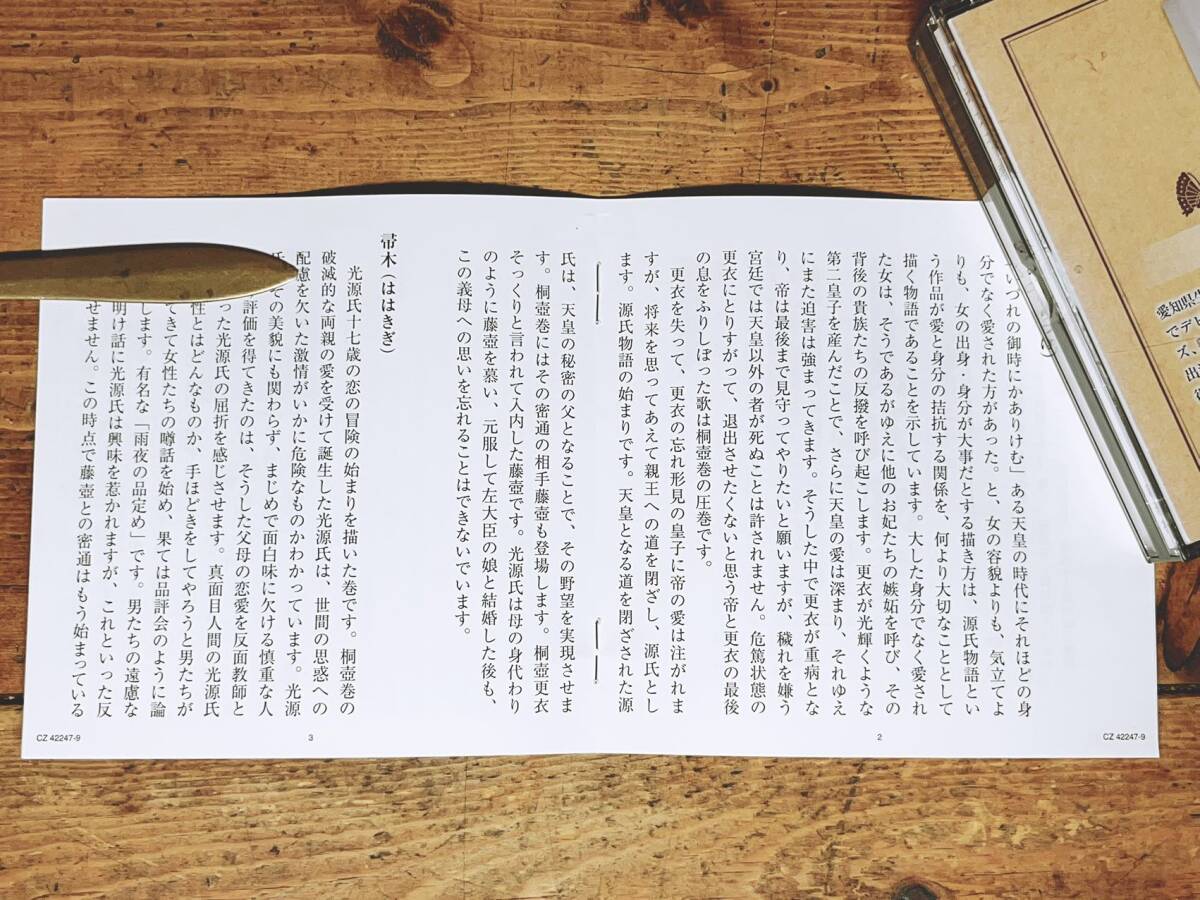 け）
「いづれの御時にかありけむ」ある天皇の時代にそれほどの身
分でなく愛された方があった。と、女の容貌よりも、気立てよ
りも、女の出身・身分が大事だとする描き方は、源氏物語とい
う作品が愛と身分の拮抗する関係を、何より大切なこととして
描く物語であることを示しています。大した身分でなく愛され
た女は、そうであるがゆえに他のお妃たちの嫉妬を呼び、その
背後の貴族たちの反撥を呼び起こします。更衣が光輝くような
第二皇子を産んだことで、さらに天皇の愛は深まり、それゆえ
にまた迫害は強まってきます。そうした中で更衣が重病とな
り、帝は最後まで見守ってやりたいと願いますが、穢れを嫌う
宮廷では天皇以外の者が死ぬことは許されません。危篤状態の
更衣にとりすがって、退出させたくないと思う帝と更衣の最後
の息をふりしぼった歌は桐壺巻の圧巻です。
更衣を失って、更衣の忘れ形見の皇子に帝の愛は注がれま
すが、将来を思ってあえて親王への道を閉ざし、源氏とし
ます。源氏物語の始まりです。天皇となる道を閉ざされた源
2
CZ 42247-9
氏は、天皇の秘密の父となることで、その野望を実現させま
す。桐壺巻にはその密通の相手藤壺も登場します。桐壺更衣
そっくりと言われて入内した藤壺です。光源氏は母の身代わり
のように藤壺を慕い、元服して左大臣の娘と結婚した後も、
この義母への思いを忘れることはできないでいます。
帚木（ははきぎ）
光源氏十七歳の恋の冒険の始まりを描いた巻です。桐壺巻の
破滅的な両親の愛を受けて誕生した光源氏は、世間の思惑への
配慮を欠いた激情がいかに危険なものかわかっています。光源
ての美貌にも関わらず、まじめで面白味に欠ける慎重な人
評価を得てきたのは、そうした父母の恋愛を反面教師と
った光源氏の屈折を感じさせます。真面目人間の光源氏
性とはどんなものか、手ほどきをしてやろうと男たちが
てきて女性たちの噂話を始め、果ては品評会のように論
します。有名な「雨夜の品定め」です。男たちの遠慮な
明け話に光源氏は興味を惹かれますが、これといった反
せません。この時点で藤壺との密通はもう始まっている
3
CZ 42247-9
愛知県
でデビ
ズ、
出